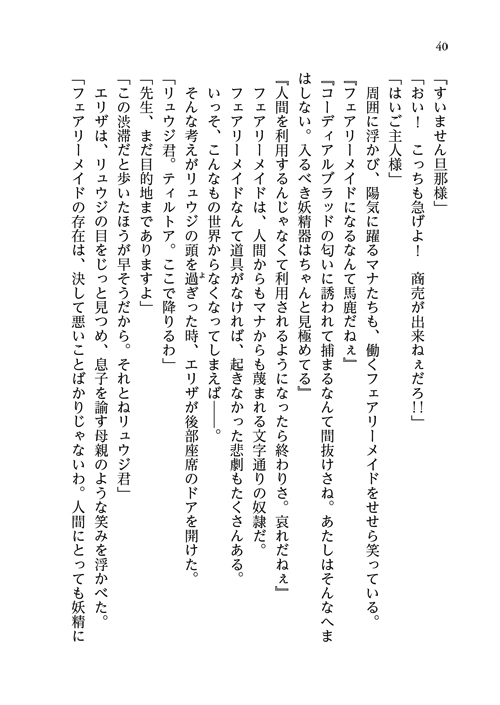 40
「すいません旦那様」
「おい！　こっちも急げよ！　商売が出来ねぇだろ!!」
「はいご主人様」
　周囲に浮かび、陽気に躍るマナたちも、働くフェアリーメイドをせせら笑っている。
『フェアリーメイドになるなんて馬鹿だねぇ』
『コーディアルブラッドの匂いに誘われて捕まるなんて間抜けさね。あたしはそんなへま
はしない。入るべき妖精器はちゃんと見極めてる』
『人間を利用するんじゃなくて利用されるようになったら終わりさ。哀れだねぇ』
　フェアリーメイドは、人間からもマナからも蔑まれる文字通りの奴隷だ。
　フェアリーメイドなんて道具がなければ、起きなかった悲劇もたくさんある。
　いっそ、こんなもの世界からなくなってしまえば――。
　そんな考えがリュウジの頭を過よぎった時、エリザが後部座席のドアを開けた。
「リュウジ君。ティルトア。ここで降りるわ」
「先生、まだ目的地までありますよ」
「この渋滞だと歩いたほうが早そうだから。それとねリュウジ君」
　エリザは、リュウジの目をじっと見つめ、息子を諭す母親のような笑みを浮かべた。
「フェアリーメイドの存在は、決して悪いことばかりじゃないわ。人間にとっても妖精に